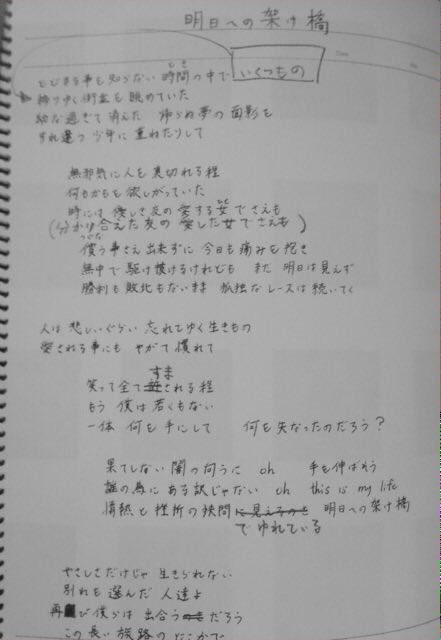 明日への架け橋
とどまる事を知らない 時間の中で いくつもの
とき
移りゆく街並を 眺めていた
幼な過ぎて 消えた 帰らぬ夢の 面影を
すれ違う 少年に 重ねたりして
無邪気に人を 裏切れる程
何もかもを 欲しがっていた
時には 優しき友の 愛する女でさえも
(分かり合えた友の 愛した女でさえも)
償う事さえ出来ずに 今日も痛みを 抱き
夢中で 駆け抜けるけれども まだ 明日は見えず
勝利も敗北もないまま 孤独なレースは続いてく
人は 悲しいぐらい 忘れてゆく生きもの
愛される事にも やがて 慣れて
すま
笑って全て される程
もう 僕は若くもない
一体 何を 手にして 何を失なったのだろう?
果てしない 闇の向うに oh 手を伸ばそう
誰の為に ある訳じゃない oh this is my life
情熱と 挫折の狭間に見えるのも 明日への架け橋
でゆれている
やさしさだけじゃ 生きられない
別れを選んだ 人達よ
再び僕らは 出会う だろう
この長い 旅路の どこかで